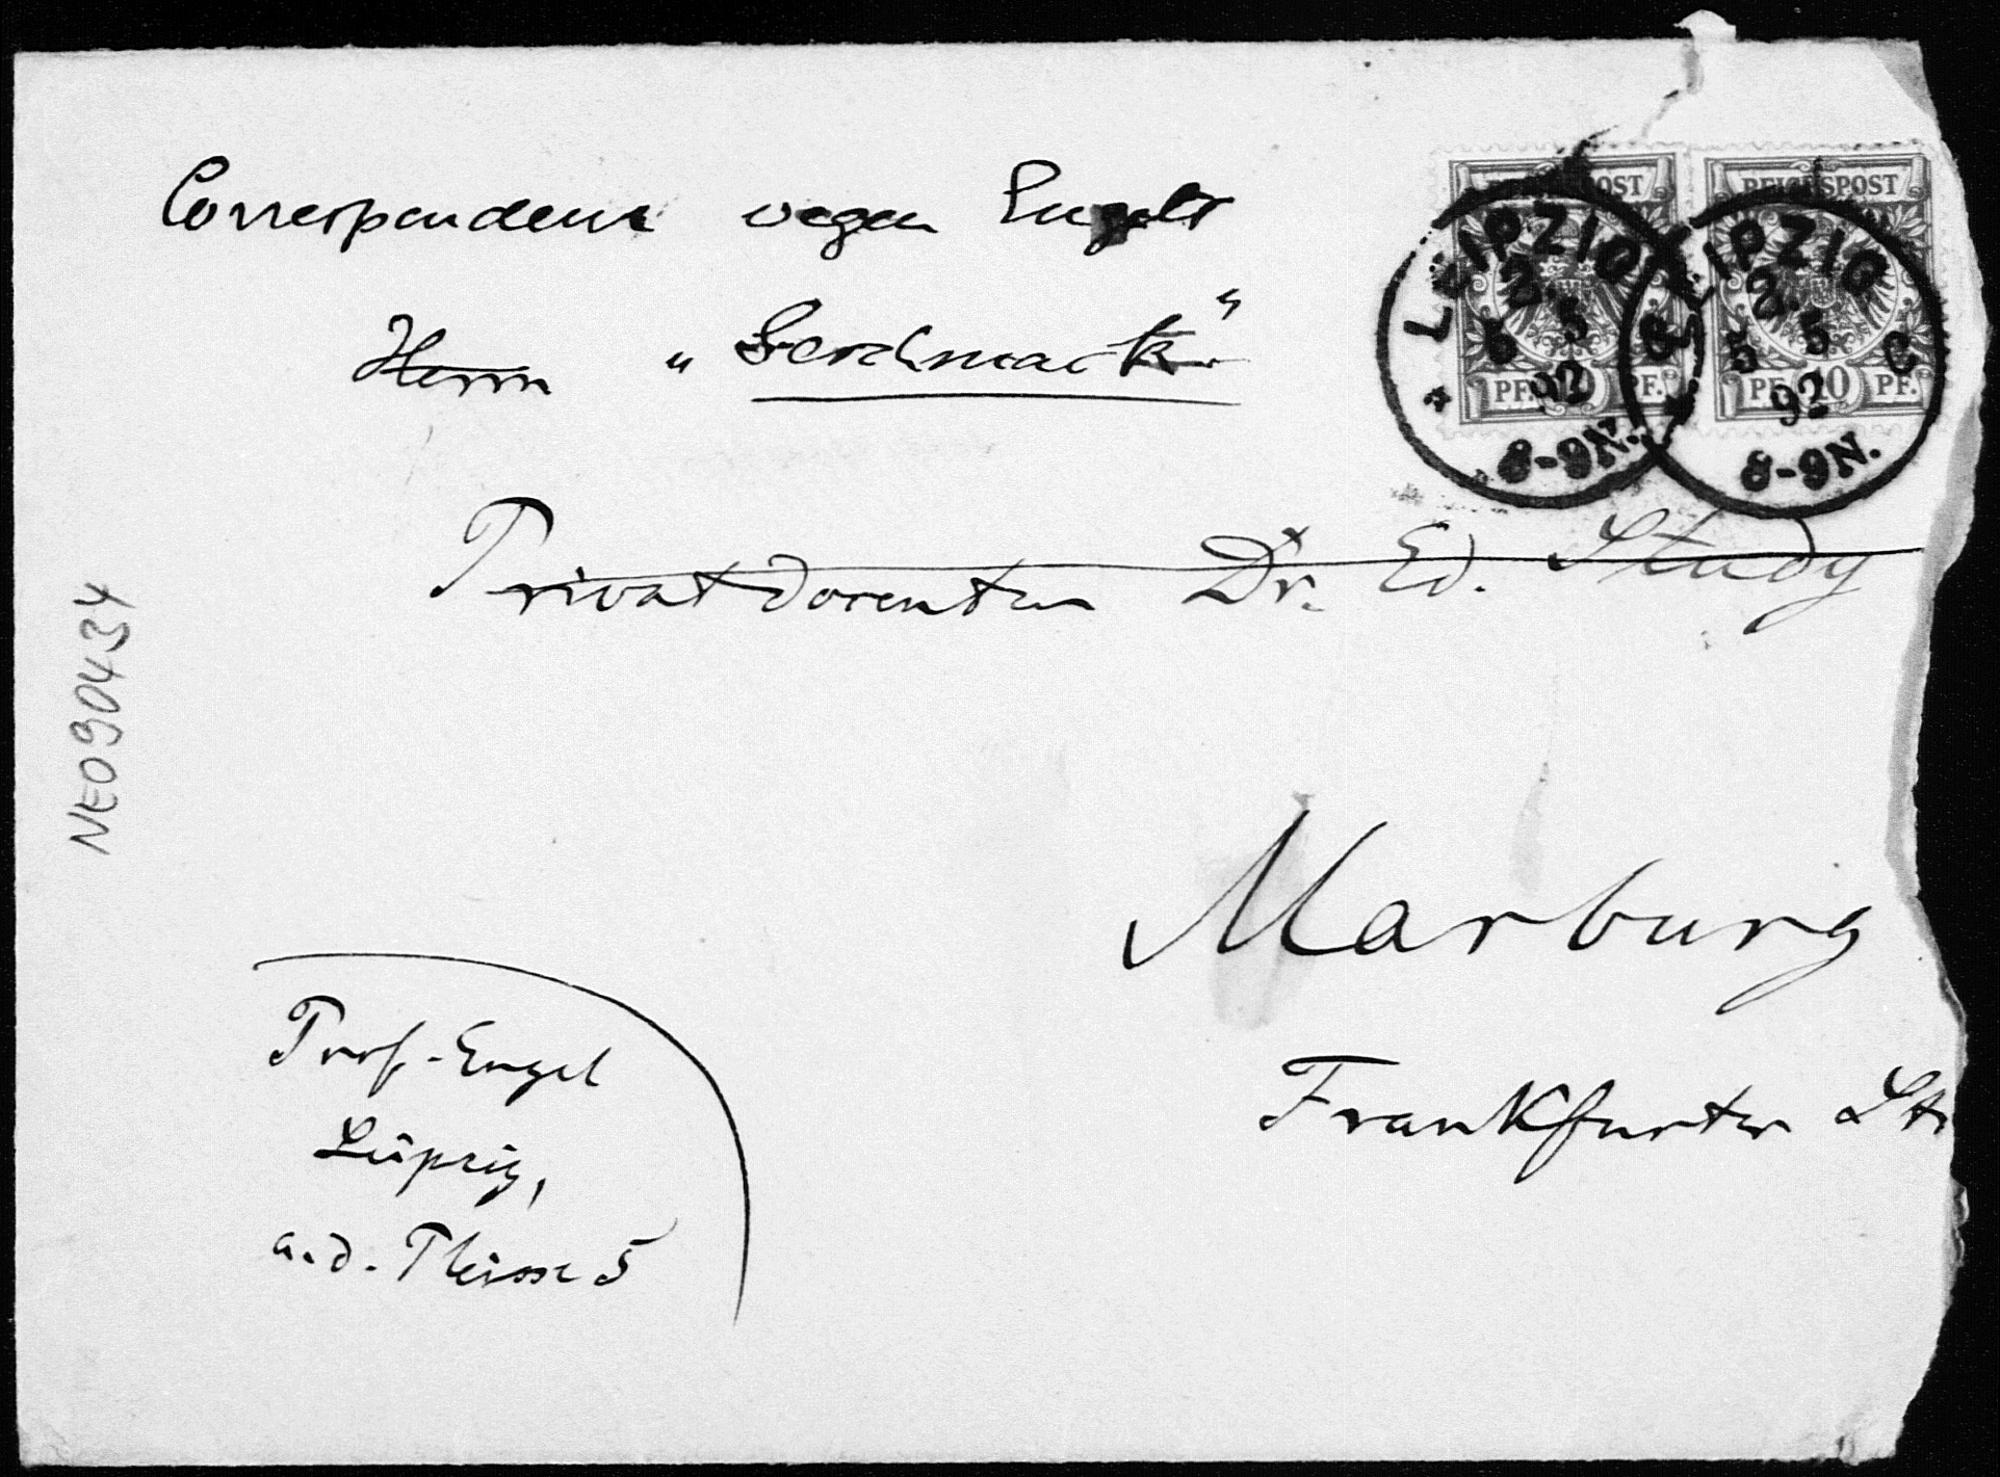 Correspondenz wegen Engels
Herrn „Geschmack“
Privatdocenten Dr. Ed. Study
Marburg
Frankfurter Str
Prof. Engel
Leipzig,
a. d. Pleisse 5
NE090434
REICHSPOST
PF. 10 PF.
LEIPZIG
3. 5
5 C
92
8-9N.
REICHSPOST
PF. 10 PF.
LEIPZIG
3. 5
5 C
92
8-9N.